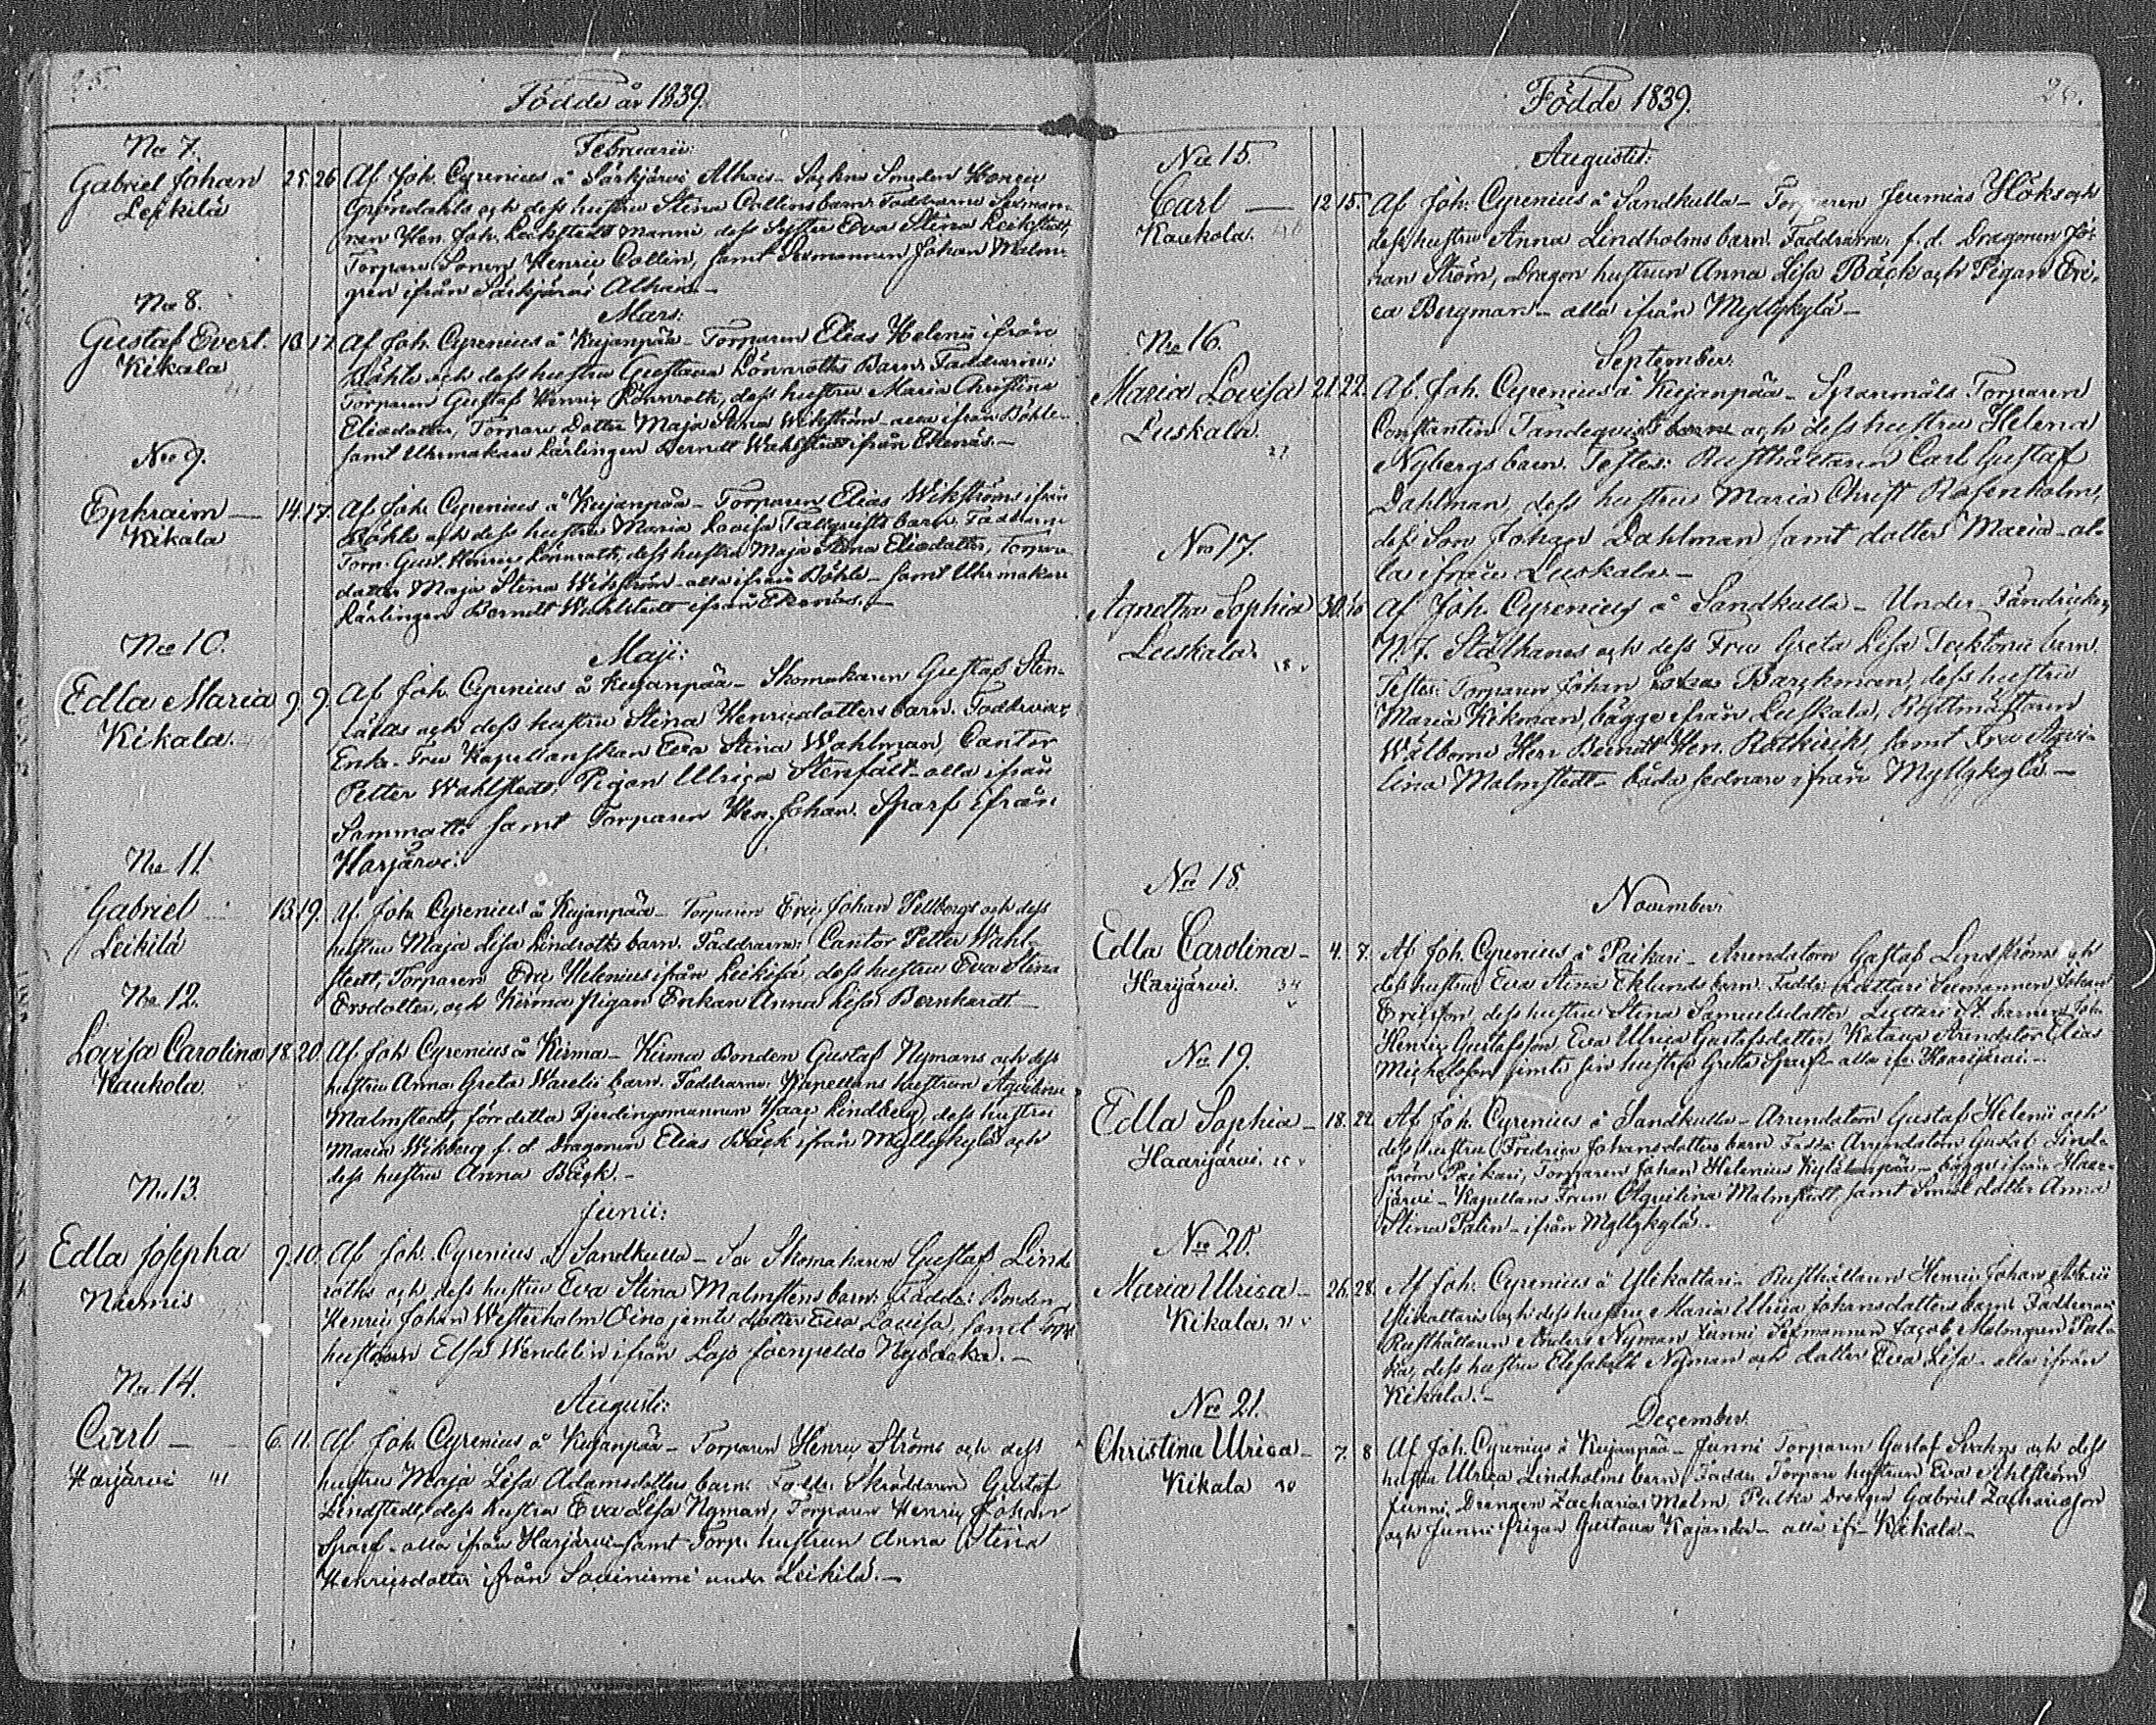 25.
Födde år 1839.
No 7.
Februarii:
Gabriel Johan 25. 26. Af Joh. Cyrenius å Särkjärvi Alhais - Sockne Smeden Henric
Leikilä
Gröndahls och dess hustru Stina Collins barn. Faddrarne Sexman-
nen Hen. Joh. Leikstedt Manni, dess Syster Eva Stina Leikstedt,
Torpare Sonen Henric Collin, samt Sexmannen Johan Malm-
gren ifrån Särkjärvi Alhais.-
No 8.
Mars:
Gustaf Evert. 13. 17. Af Joh. Cyrenius å Kujanpää - Torparen Elias Helenii ifrån
Kikala
Böhle och dess hustru Gustava Lönnroths Barn. Faddrarne:
Torparen Gustaf Henric Lönnroth, dess hustru Maria Christina
Eliædotter, Torpare Dotter Maja Stina Wikström - alla ifrån Böhle -
samt Uhrmakare Lärlingen Berndt Wahlstedt ifrån Ekenäs.-
No 9.
Ephraim — 14. 17. Af Joh. Cyrenius å Kujanpää - Torparen Elias Wikströms ifrån
Kikala
Böhle och dess hustru Maria Lovisa Tallqvists barn. Faddrarne
Torp. Gust. Henric Lönnroth, dess hustru Maja Stina Eliædotter, Torpare
dotter Maja Stina Wikström - alla ifrån Böhle - samt Uhrmakare
Lärlingen Berndt Wahlstedt ifrån Ekenäs.-
No 10.
Maji:
Edla Maria 9. 9. Af Joh. Cyrenius å Kujanpää - Skomakaren Gustaf Sten-
Kikala.
fälts och dess hustru Stina Henricsdotters barn. Faddrar:
Enke-Fru Kapellanskan Eva Stina Wahlman, Cantor
Petter Wahlstedt, Pigan Ulrica Stenfält - alla ifrån
Sammatti samt Torparen Hen. Johan Sparf ifrån
Harjärvi.
No 11.
Gabriel 13. 19. Af Joh. Cyrenius å Kujanpää - Torparen Eric Johan Sellbergs och dess
Leikilä
hustru Maja Lisa Lindroths barn. Faddrarne: Cantor Petter Wahl-
stedt, Torparen Eric Helenius ifrån Leikilä, dess hustru Eva Stina
Ersdotter, och Kirma pigan Enkan Anna Lisa Bernhardt —
No 12.
Lovisa Carolina 18. 20. Af Joh. Cyrenius å Kirma - Kirma Bonden Gustaf Nymans och dess
Kaukola.
hustru Anna Greta Warelii barn. Faddrarne: Kapellans hustrun Aqvilina
Malmstedt, förre detta Fjerdingsmannen Isaac Lindberg, dess hustru
Maria Wikberg f. d. Dragonen Elias Bäck ifrån Myllykylä och
dess hustru Anna Bäck.-
No 13.
Junii:
Edla Josepha 9. 10. Af Joh. Cyrenius å Sandkulla - Sockne Skomakaren Gustaf Lind-
Niemis
roths och dess hustru Eva Stina Malmstens barn. Fadde: Bonden
Henric Johan Westerholm Oino jemte dotter Eva Lovisa, samt Torp.
hustrun Elsa Wendelin ifrån Lojo Nybacka.-
No 14.
Augusti:
Carl — 6. 11. Af Joh. Cyrenius å Kujanpää - Torparen Henric Ströms och dess
Harjärvi 41
hustru Maja Lisa Adamsdotters barn. Fadde: Skräddaren Gustaf
Lindstedt, dess hustru Eva Lisa Nyman, Torparen Henric Johan
Sparf - alla ifrån Harjärvi samt Torp. hustrun Anna Stina
Henricsdotter ifrån Saviniemi under Leikilä.-
26.
Födde 1839.
No 15.
Augusti:
Carl — 12. 15. Af Joh. Cyrenius å Sandkulla - Torparen Jeremias Höks och
Kaukola.
dess hustru Anna Lindholms barn. Faddrarne: f. d. Dragonen Jo-
han Ström, Dragon hustrun Anna Lisa Bäck och Pigan Eri-
ca Bergman - alla ifrån Myllykylä -
No 16.
September:
Maria Lovisa 21. 22. Af Joh. Cyrenius å Kujanpää - Spanmåls Torparen
Luskala.
Constantin Tandeqvists barn och dess hustru Helena
Nybergs barn. Testes: Rusthållaren Carl Gustaf
Dahlman, dess hustru Maria Christ Rosenholm,
dess Son Johan Dahlman samt dotter Maria - al-
la ifrån Luskala.-
No 17.
Agnetha Sophia 30. Af Joh. Cyrenius å Sandkulla - Under Fändricken
Luskala. 18
N. J. Stålhanes och dess Fru Greta Lisa Tecktonii barn.
Testes: Torparen Johan Barckman, dess hustru
Maria Kikman, bägge ifrån Luskala, Ryttmästaren
Wälborne Herr Berndt Hen. Rotkirch, samt Fru Aqvi-
lina Malmstedt - båda sednare ifrån Myllykylä.-
No 18.
November:
Edla Carolina - 4. 7. Af Joh. Cyrenius å Paikari - Arrendatorn Gustaf Lindströms och
Harijärvi. 34
dess hustru Eva Stina Eklunds barn. Fadde: Luttari Sexmannen Johan
Ericsson dess hustru Stina Samuelsdotter, Luttari
Henric Gustafsson, Eva Ulrica Gustafsdotter, Katava Arrendator Elias
Michelsson jemte sin hustru Greta Sparf - alla ifr. Haarijärvi.-
No 19.
Edla Sophia - 18. 22. Af Joh. Cyrenius å Sandkulla - Arrendatorn Gustaf Helenii och
Haarijärvi. 25
dess hustru Fredrica Johansdotters barn. Fadde: Arrendatorn Gustaf Lind-
ström Paikari, Torparen Johan Helenius - bägge ifrån Haari-
järvi - Kapellans Frun Aqvilina Malmstedt, samt Smeds dotter Anna
Stina Palin - ifrån Myllykylä.-
No 20.
Maria Ulrica - 26. 28. Af Joh. Cyrenius å Ylikottari - Rusthållaren Henric Johan
Kikala. 31
Ylikottaris och dess hustru Maria Ulrica Johansdotters barn. Faddrarne
Rusthållaren Anders Nyman Junni Sexmannen Jacob Malmgren Pul-
ka, dess hustru Elisabeth Nyman och dotter Eva Lisa - alla ifrån
Kikala.-
No 21.
December.
Christina Ulrica - 7. 8 Af Joh. Cyrenius å Kujanpää - Junni Torparen Gustaf Svahns och dess
Kikala 30
hustru Ulrica Lindholms barn. Fadde: Torpare hustrun Eva Ahlström
Junni, Drängen Zacharias Malm, Pulka Drängen Gabriel Zachariasson
och Junni Pigan Gustava Kajander - alla ifr. Kikala -